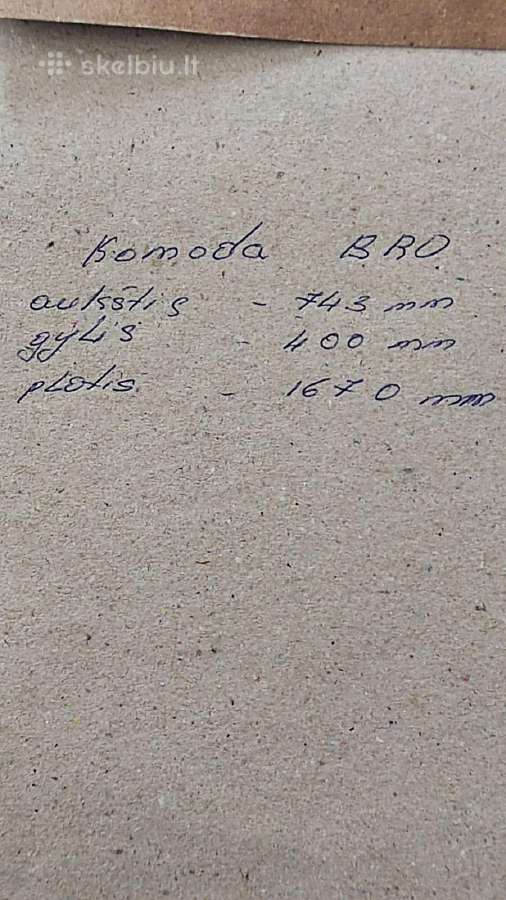 skelbiu.lt
Komoda BRO
aukštis - 743 mm
gylis - 400 mm
plotis. - 1670 mm